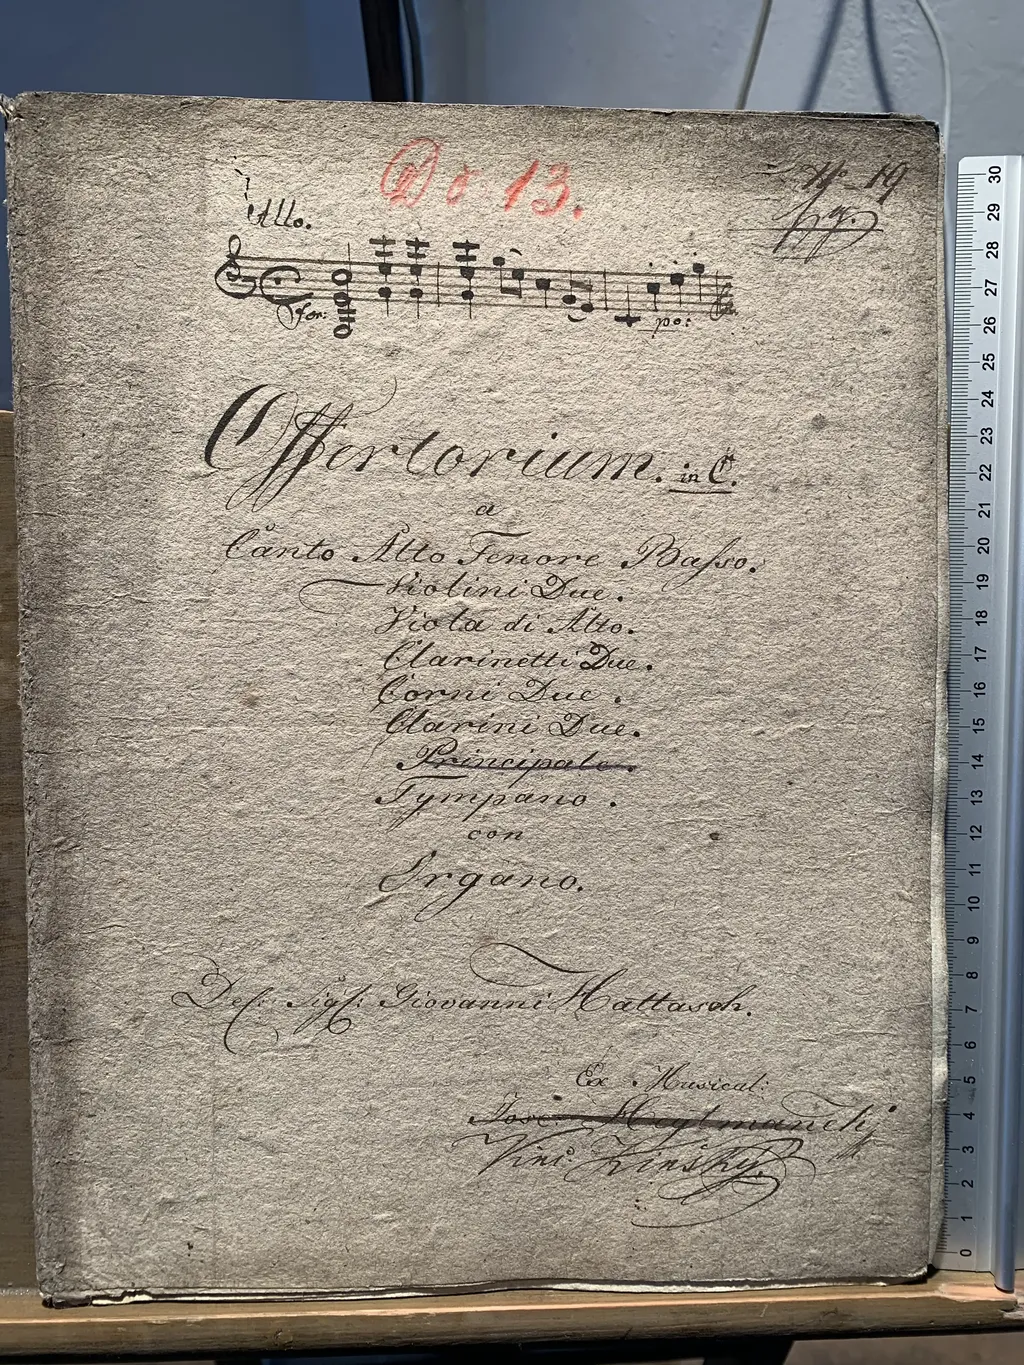 Do 13.
No 19
Allo.
for:
po:
Offertorium. in C.
a
Canto Alto Tenore Basso.
Violini Due.
Viola di Alto.
Clarinetti Due.
Corni Due.
Clarini Due.
Principale.
Tympano.
con
Organo.
Del: Sigf: Giovanni Hattasch.
Ex Musical:
Vinc: Kinsky.
30
29
28
27
26
25
24
23
22
21
20
19
18
17
16
15
14
13
12
11
10
9
8
7
6
5
4
3
2
1
0